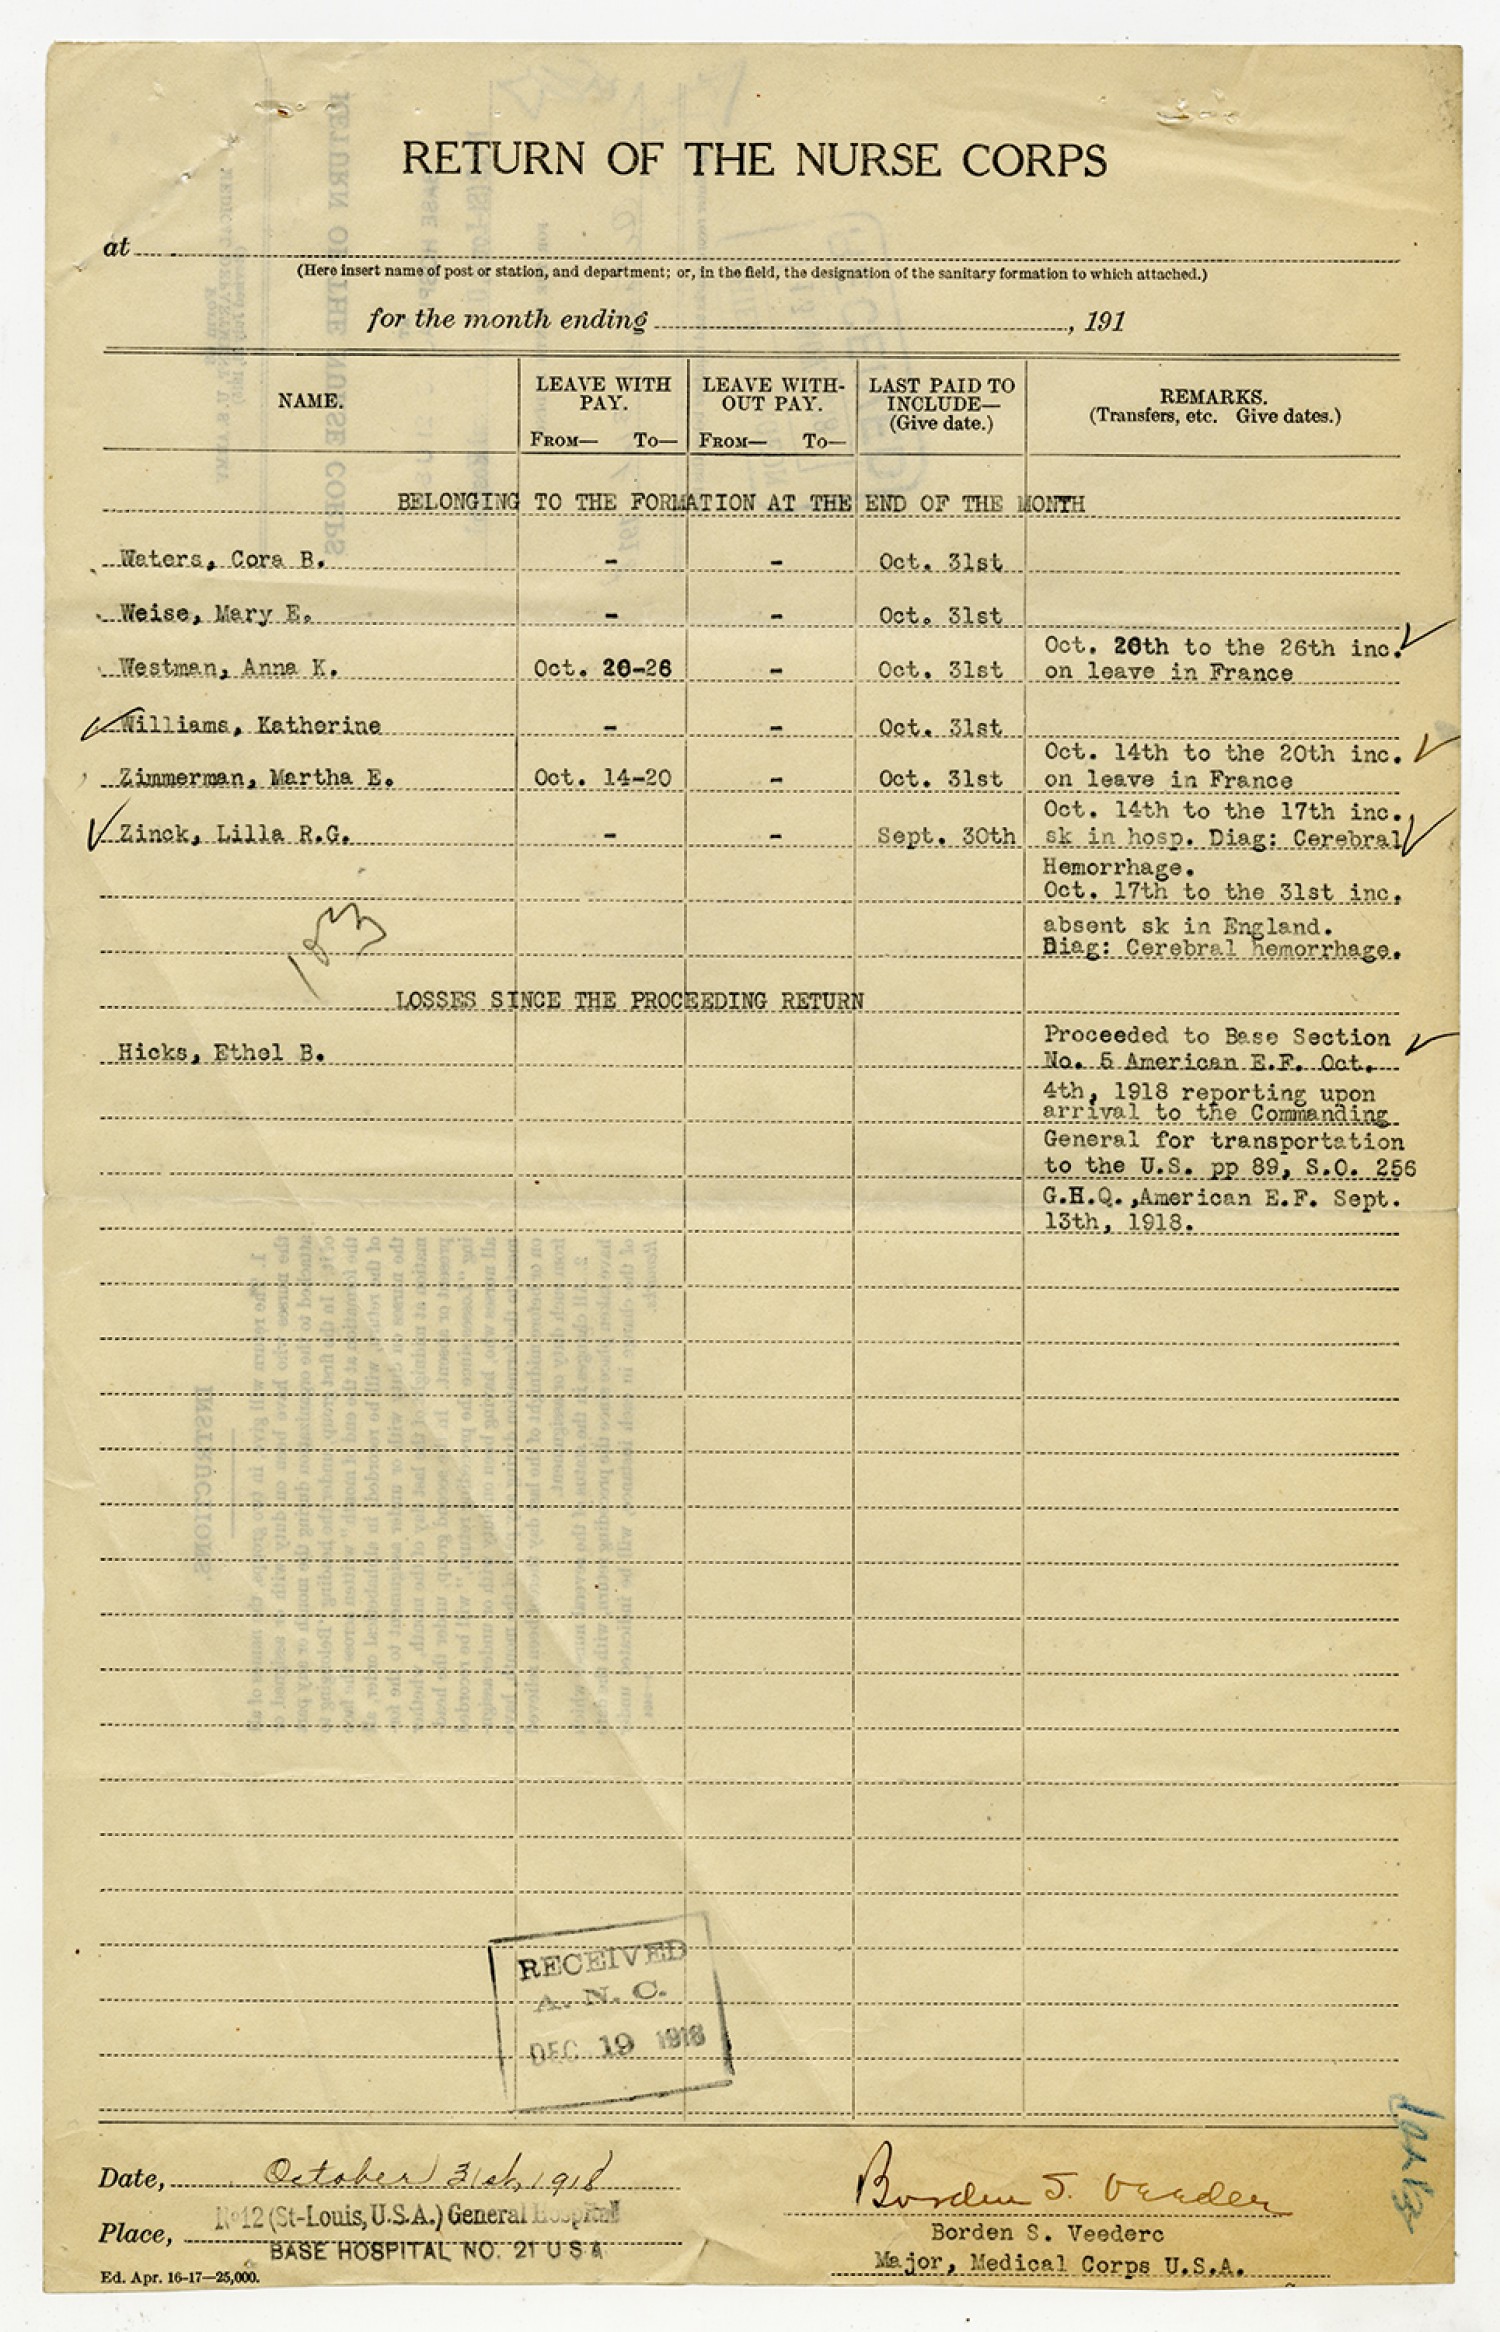 RETURN OF THE NURSE CORPS
at
(Here insert name of post or station, and department; or, in the field, the designation of the sanitary formation to which attached.)
for the month ending , 191
NAME. LEAVE WITH PAY. FROM— TO— LEAVE WITH-OUT PAY. FROM— TO— LAST PAID TO INCLUDE— (Give date.) REMARKS. (Transfers, etc. Give dates.)
BELONGING TO THE FORMATION AT THE END OF THE MONTH
Waters, Cora B. - - Oct. 31st
Weise, Mary E. - - Oct. 31st
Oct. 20th to the 26th inc.
Westman, Anna K. Oct. 20-26 - Oct. 31st on leave in France
Williams, Katherine - - Oct. 31st
Oct. 14th to the 20th inc.
Zimmerman, Martha E. Oct. 14-20 - Oct. 31st on leave in France
Oct. 14th to the 17th inc.
Zinck, Lilla R.G. - - Sept. 30th sk in hosp. Diag: Cerebral
Hemorrhage.
Oct. 17th to the 31st inc.
absent sk in England.
Diag: Cerebral hemorrhage.
LOSSES SINCE THE PROCEEDING RETURN
Proceeded to Base Section
Hicks, Ethel B. No. 5 American E.F. Oct.
4th, 1918 reporting upon
arrival to the Commanding
General for transportation
to the U.S. pp 89, S.O. 256
G.H.Q.,American E.F. Sept.
13th, 1918.
RECEIVED
A. N. C.
DEC 19 1918
Date, October 31st, 1918
Borden S. Veeder
Place, No 12 (St-Louis, U.S.A.) General Hospital
BASE HOSPITAL NO. 21 U S A
Borden S. Veederc
Major, Medical Corps U.S.A.
Ed. Apr. 16-17—25,000.